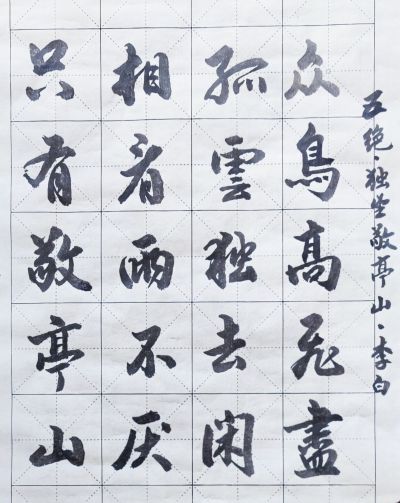 五绝·独坐敬亭山·李白
众鳥高飞盡
孤雲独去闲
相看兩不厌
只有敬亭山